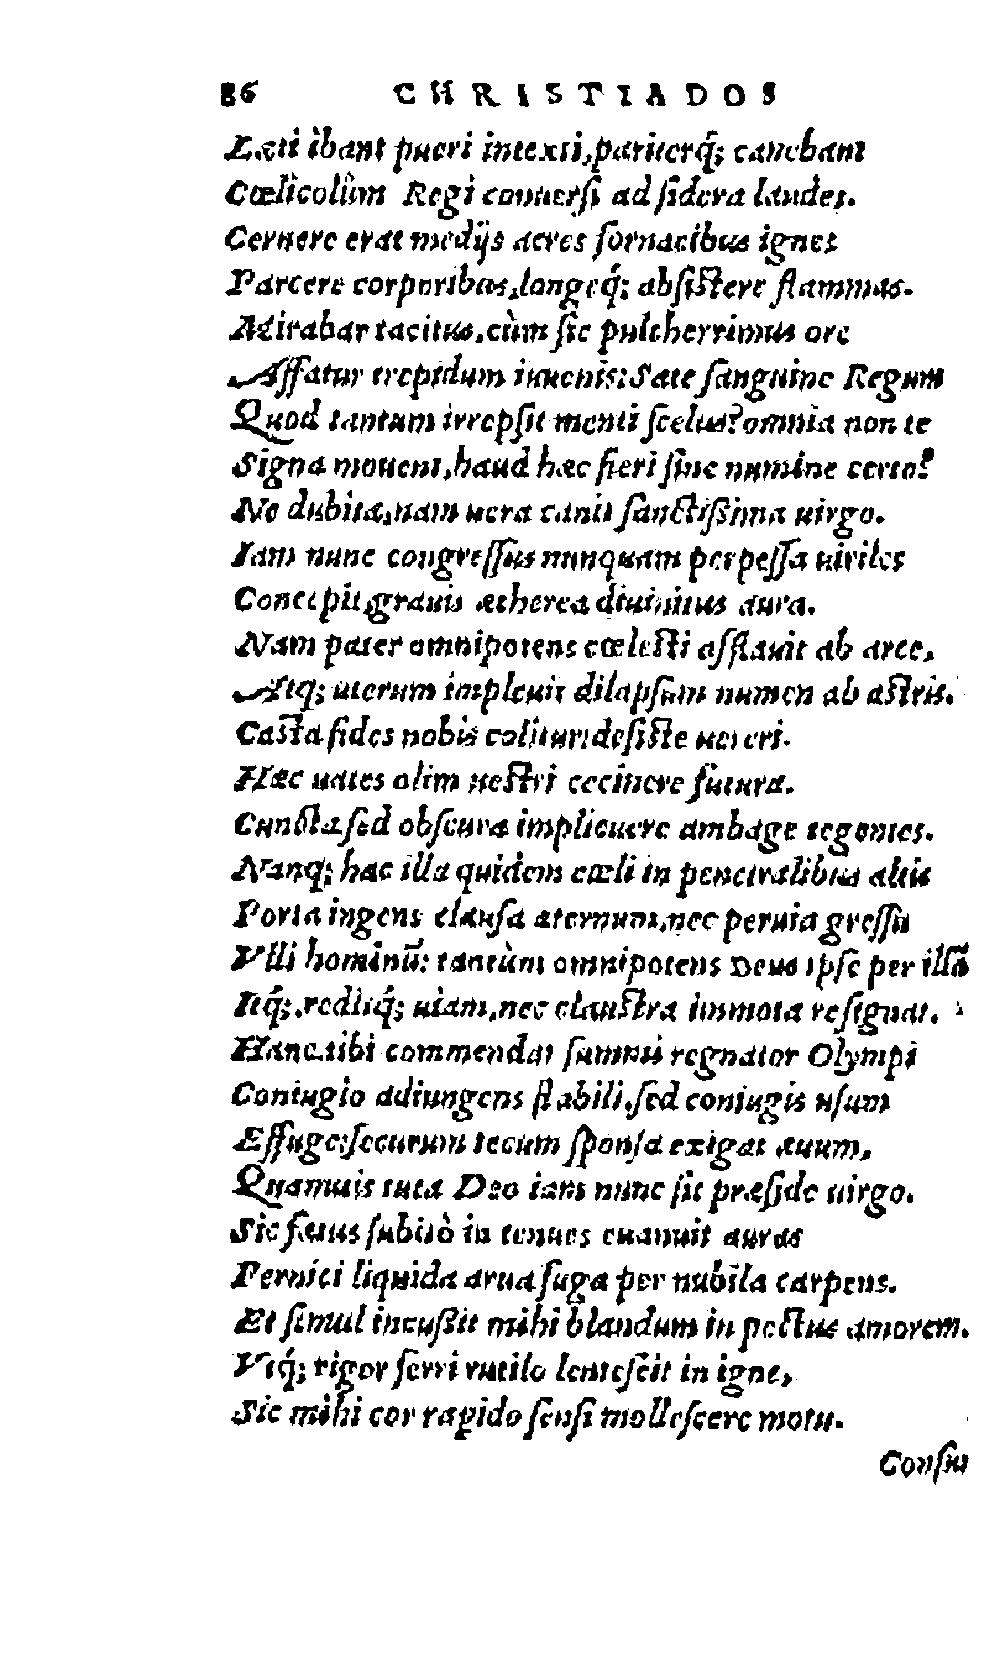 86 CHRISTIADOS
Læti ibant pueri intexti, pariterq́; canebant
Cœlicolûm Regi conuersi ad sidera laudes.
Cernere erat medijs acres fornacibus ignes
Parcere corporibus, longeq́; absistere flammas.
Mirabar tacitus, cùm sic pulcherrimus ore
Affatur trepidum iuuenis: Sate sanguine Regum
Quod tantum irrepsit menti scelus? omnia non te
Signa mouent, haud hæc fieri sine numine certo?
Ne dubita, nam uera canit sanctissima uirgo.
Iam nunc congressus nunquam perpessa uiriles
Concipit, grauis ætherea diuinitus aura.
Nam pater omnipotens cœlesti afflauit ab arce,
Atq; uterum impleuit dilapsum numen ab astris.
Casta fides nobis colitur: desiste uereri.
Hæc uates olim uestri cecinere futura.
Cuncta sed obscura implicuere ambage tegentes.
Nanq; hæc illa quidem cœli in penetralibus altis
Porta ingens clausa æternum, nec peruia gressu
Vlli hominũ: tantùm omnipotens Deus ipse per illã
Itq́;, reditq́; uiam, nec claustra immota resignat.
Hanc tibi commendat summi regnator Olympi
Coniugio adiungens stabili, sed coniugis usum
Effuge: securum tecum sponsa exigat æuum,
Quamuis tuta Deo iam nunc sit præside uirgo.
Sic fatus subitò in tenues euanuit auras
Pernici liquida arua fuga per nubila carpens.
Et simul incussit mihi blandum in pectus amorem.
Vtq́; rigor ferri rutilo lentescit in igne,
Sic mihi cor rapido sensi mollescere motu.
Consu